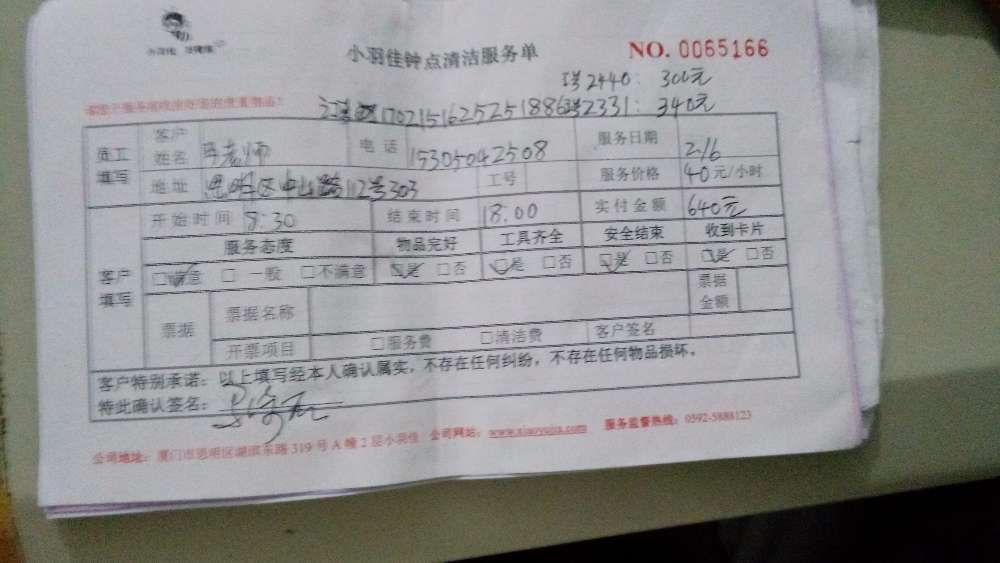 小羽佳钟点清洁服务单
NO. 0065166
2440: 300元
170215162525188 2331: 340元
员工填写
客户姓名 老师 电话 15305042508 服务日期 2.16
地址 思明区中山路112号303 工号 服务价格 40元/小时
客户填写
开始时间 8:30 结束时间 18:00 实付金额 640元
服务态度 物品完好 工具齐全 安全结束 收到卡片
□满意 □ 一般 □不满意 □是 □否 □是 □否 □是 □否 □是 □否
票据 票据名称 票据金额
开票项目 □服务费 □清洁费 客户签名
客户特别承诺：以上填写经本人确认属实，不存在任何纠纷，不存在任何物品损坏。
特此确认签名：
公司地址：厦门市思明区湖滨东路319号A幢2层小羽佳 公司网站：www.xiaoyujia.com 服务监督热线：0592-5888123